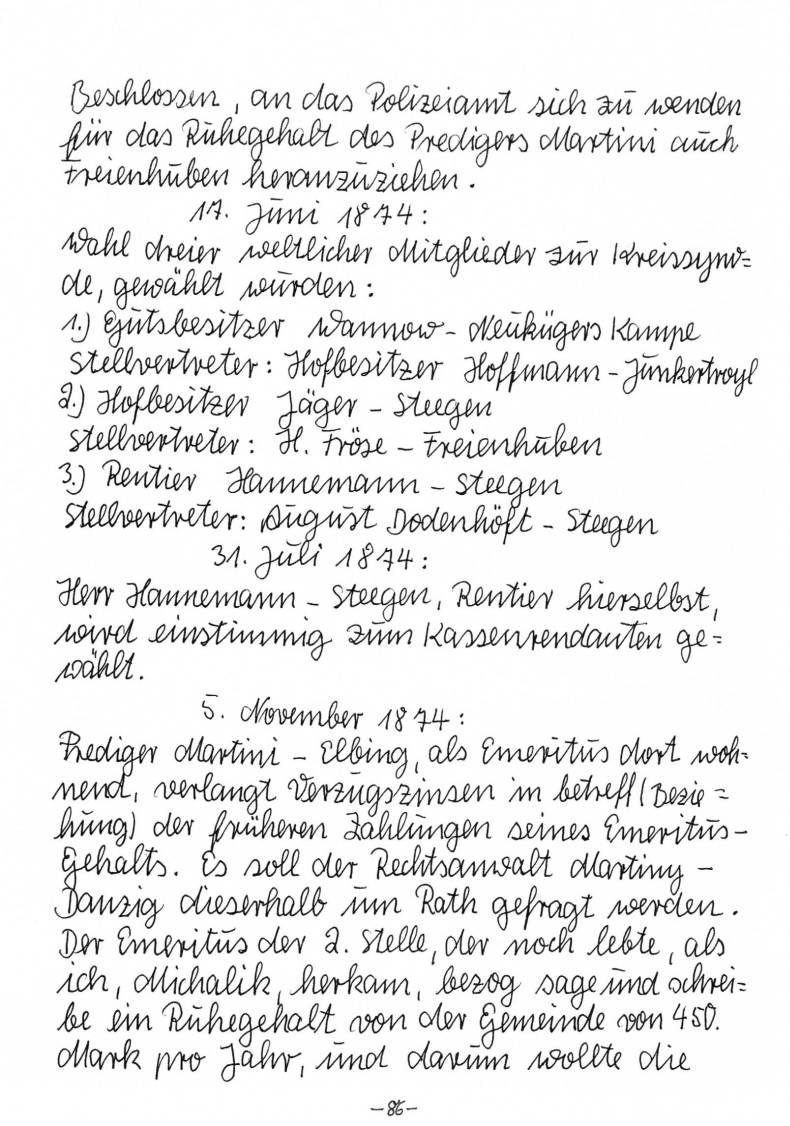 Beschlossen, an das Polizeiamt sich zu wenden
für das Ruhegehalt des Predigers Martini auch
Freienhuben heranzuziehen.
17. Juni 1874:
Wahl dreier weltlicher Mitglieder zur Kreissyno=
de, gewählt wurden:
1.) Gutsbesitzer Wannow - Neukügers Kampe
Stellvertreter: Hofbesitzer Hoffmann - Junkertroyl
2.) Hofbesitzer Jäger - Steegen
Stellvertreter: H. Fröse - Freienhuben
3.) Rentier Hannemann - Steegen
Stellvertreter: August Dodenhöft - Steegen
31. Juli 1874:
Herr Hannemann - Steegen, Rentier hierselbst,
wird einstimmig zum Kassenrendanten ge=
wählt.
5. November 1874:
Prediger Martini - Elbing, als Emeritus dort woh=
nend, verlangt Verzugszinsen in betreff (Bezie=
hung) der früheren Zahlungen seines Emeritus-
Gehalts. Es soll der Rechtsanwalt Martiny -
Danzig dieserhalb um Rath gefragt werden.
Der Emeritus der 2. Stelle, der noch lebte, als
ich, Michalik, herkam, bezog sage und schrei=
be ein Ruhegehalt von der Gemeinde von 450.
Mark pro Jahr, und darum wollte die
- 86 -